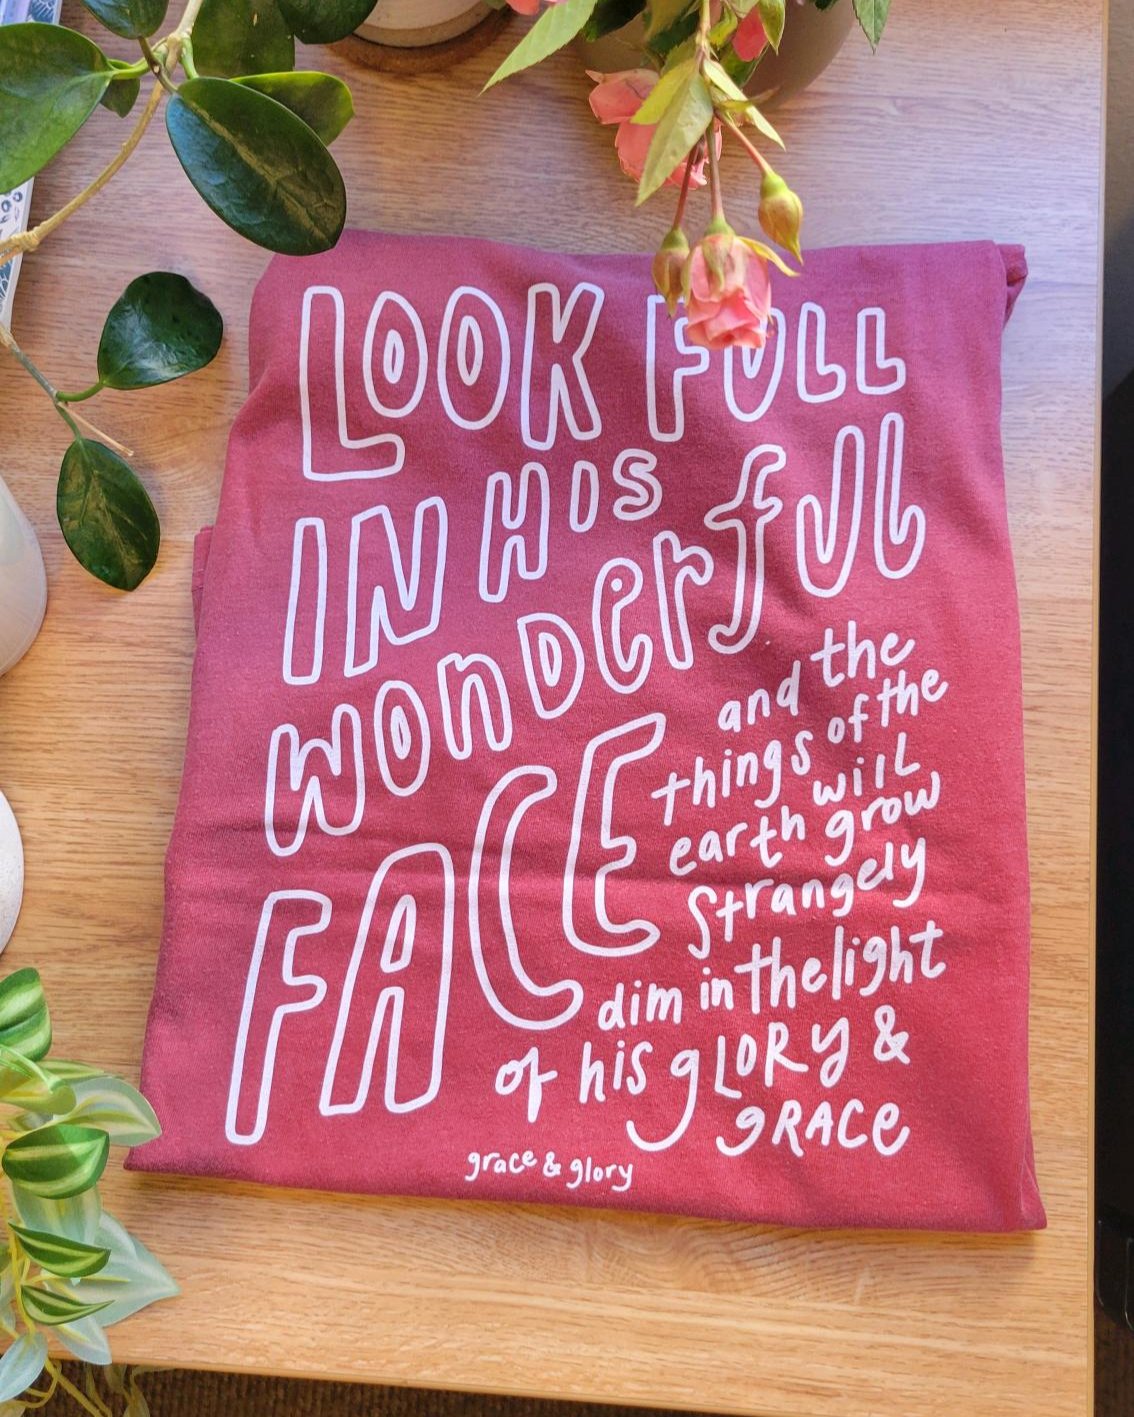 LOOK FULL
IN HIS
wonDerfUL
FACE
and the
things of the
earth will
grow
strangely
dim in the light
of his gLORy &
gRACe
grace & glory